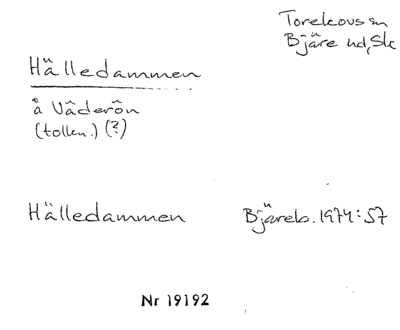 Torekovs sn
Bjäre hd, Sk
Hälledammen
å Väderön
(tolkn.) (?)
Hälledammen Bjäreb. 1974:57
Nr 19192